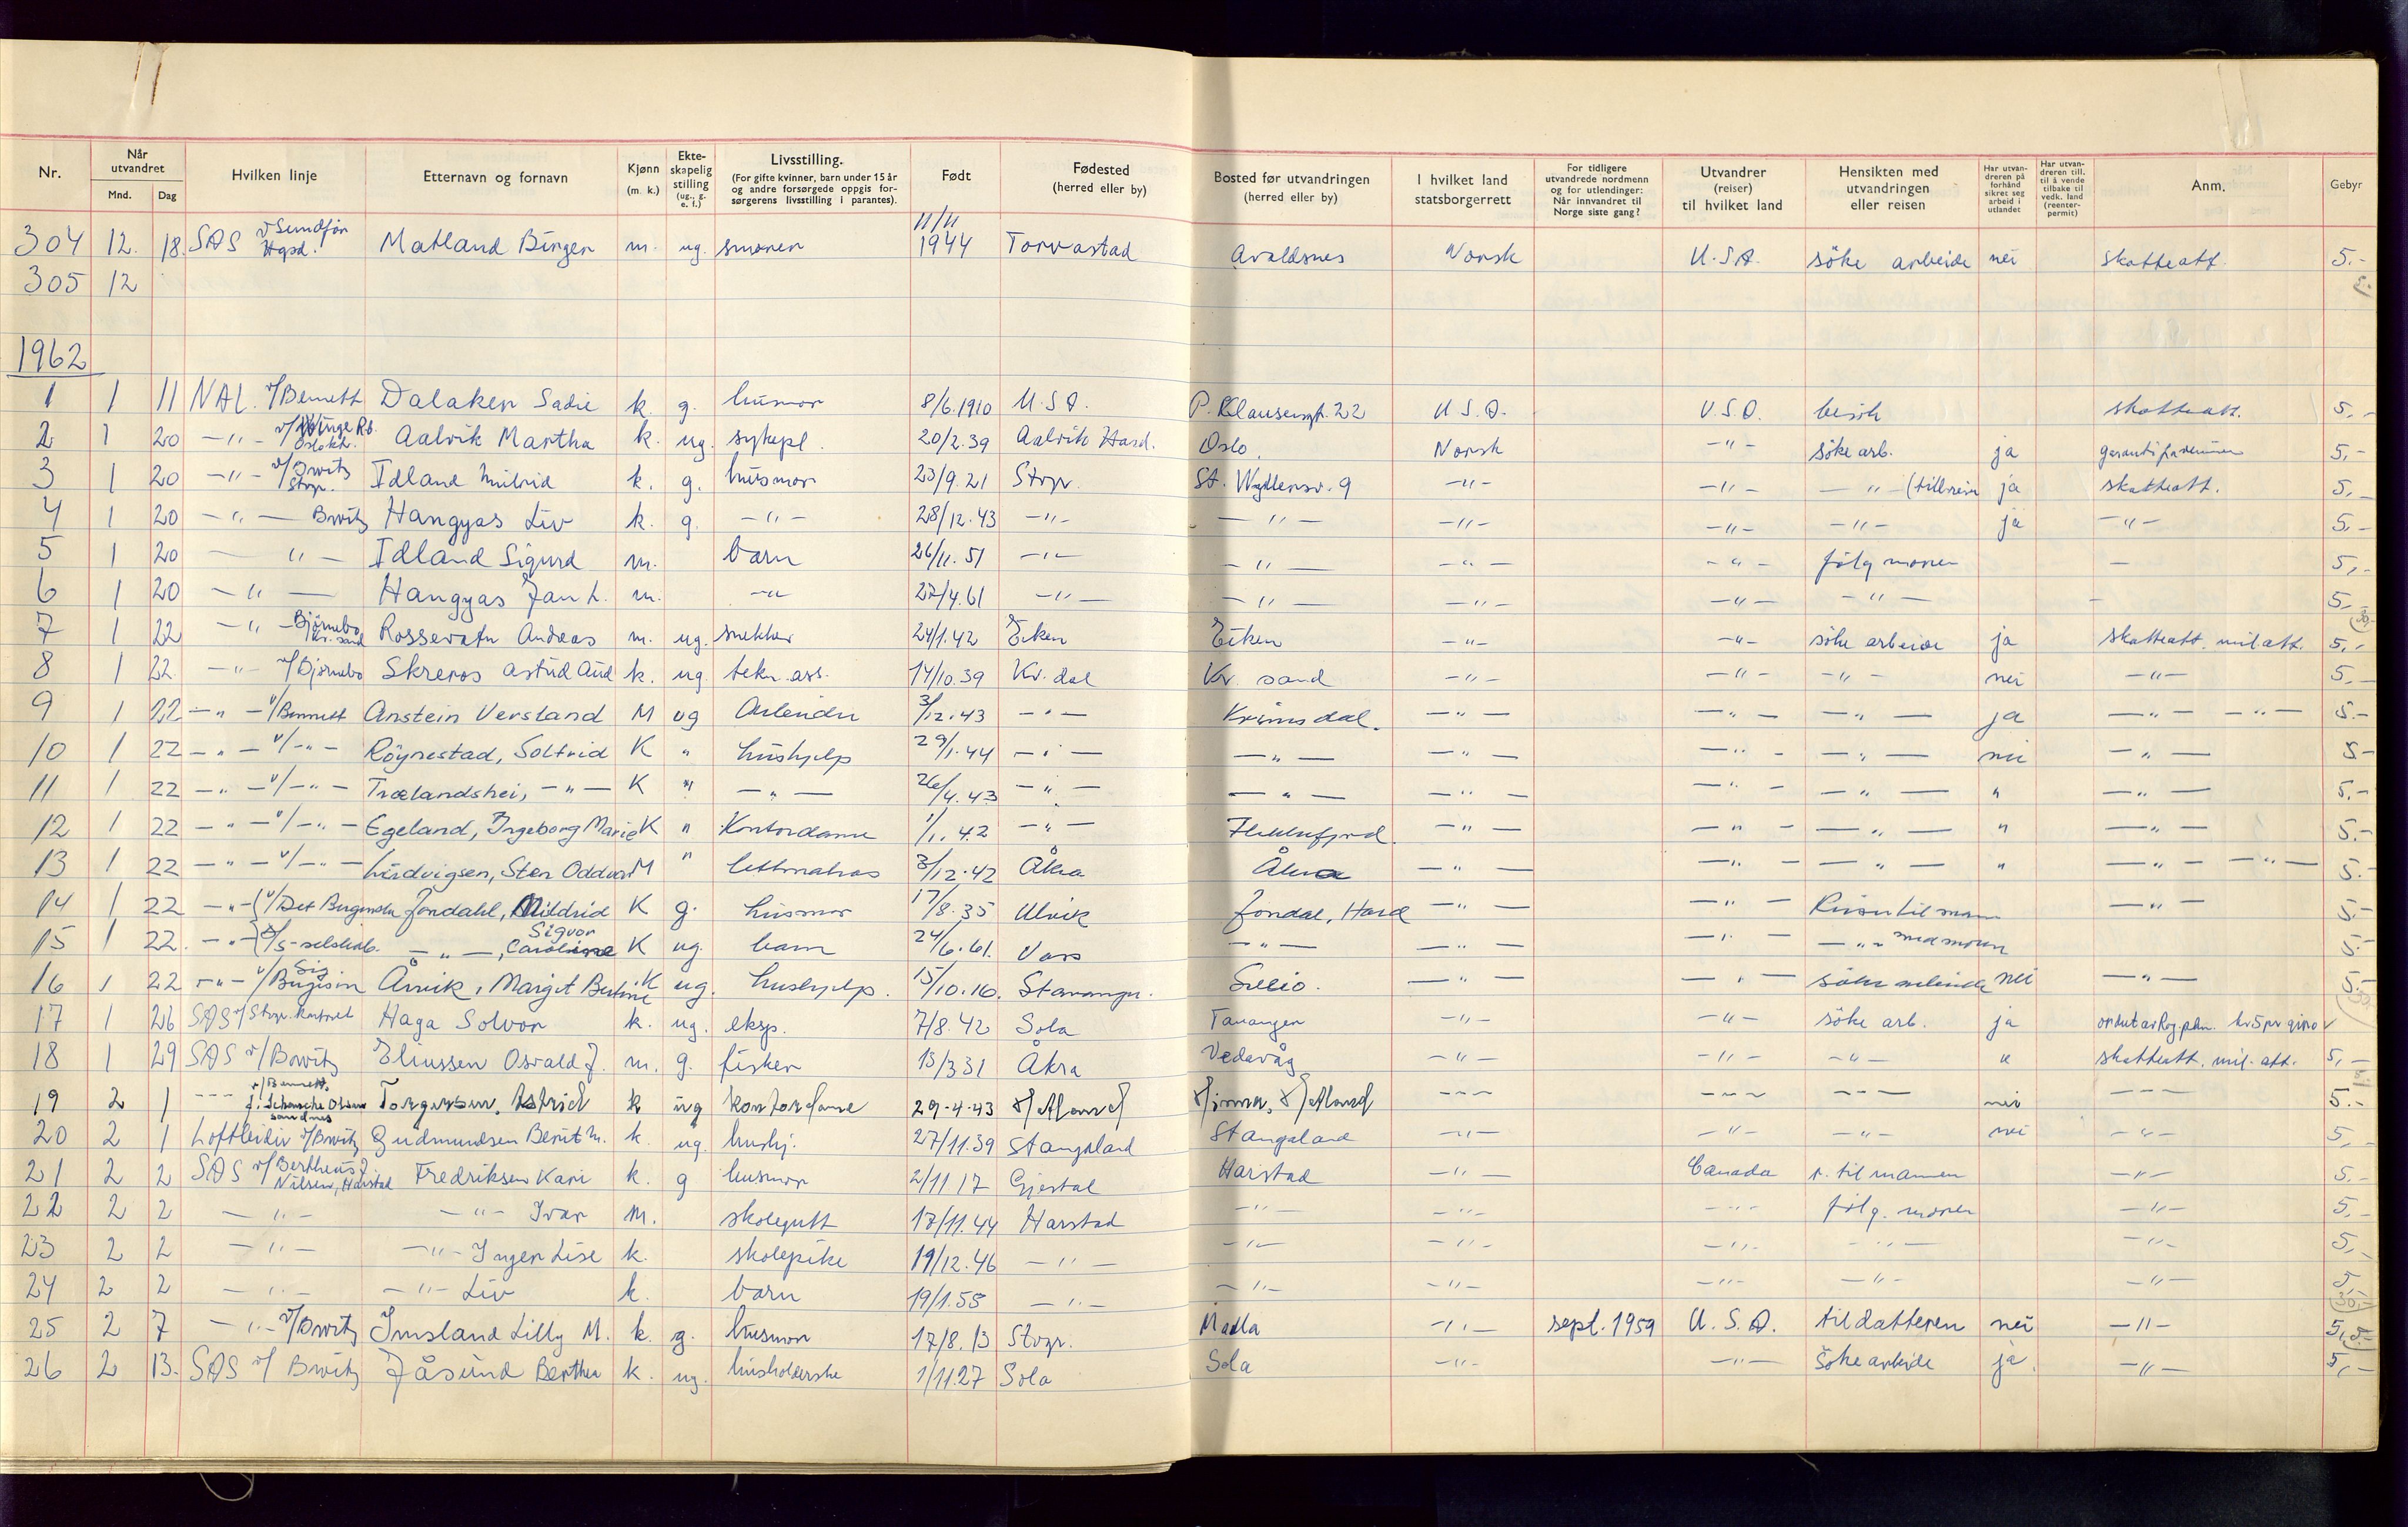 Nr. | Når utvandret Mnd. Dag | Hvilken linje | Etternavn og fornavn | Kjønn (m. k.) | Ekteskapelig stilling (ug., g. e. f.) | Livsstilling. (For gifte kvinner, barn under 15 år og andre forsørgede oppgis forsørgerens livsstilling i parantes). | Født | Fødested (herred eller by) | Bosted før utvandringen (herred eller by) | I hvilket land statsborgerrett | For tidligere utvandrede nordmenn og for utlendinger: Når innvandret til Norge siste gang? | Utvandrer (reiser) til hvilket land | Hensikten med utvandringen eller reisen | Har utvandreren på forhånd sikret seg arbeid i utlandet | Har utvandreren till. til å vende tilbake til vedk. land (reenterpermit) | Anm. | Gebyr
304 12. 18. SAS v/Sundfør Hgsd. Matland Birger m. ug. smører 11/11 1944 Torvastad Avaldsnes Norsk U.S.A. söke arbeide nei skatteatt. 5.-
305 12
1962
1 1 11 NAL. v/Bennett Dalaker Sadie k. g. husmor 8/6.1910 U.S.A. P. Klausensgt. 22 U.S.A. U.S.A. besök skatteatt. 5,-
2 1 20 -"- v/Winge Rb. Oslokt. Aalvik Martha k. ug. sykepl. 20/2.39 Aalvik Hard. Oslo. Norsk -"- söke arb. ja 5,-
3 1 20 -"- v/Brvitz Stvgr. Idland k. g. husmor 23/9.21 Stvgr. St. 9 -"- -"- -"- ja skatteatt. 5,-
4 1 20 -"- Brvitz Hangyas Liv k. g. -"- 28/12.43 -"- -"- -"- -"- -"- ja -"- 5,-
5 1 20 -"- Idland Sigurd m. barn 26/11.51 -"- -"- -"- -"- fölg moren - 5,-
6 1 20 -"- Hangyas Jan L. m. -"- 27/4.61 -"- -"- -"- -"- -"- - 5,-
7 1 22 -"- Bjørnebo Kr.sand Rossevatn Andreas m. ug. snekker 24/1.42 Eiken Eiken -"- -"- söke arbeide ja skatteatt. mil.att. 5,-
8 1 22 -"- v/Bjørnebo Skreros Astrid Aud k. ug. tekn. ass. 14/10.39 Kv. dal Kr. sand -"- -"- -"- nei -"- 5,-
9 1 22 -"- v/Bennett Anstein Versland M ug Arbeider 3/12.43 -"- Kvinesdal. -"- -"- -"- ja -"- -"- 5.-
10 1 22 -"- v/-"- Röynestad, Solfrid K " hushjelp 29/1.44 -"- -"- -"- -"- -"- nei -"- 5-
11 1 22 -"- v/-"- Trælandshei, -"- K " -"- 26/4.43 -"- -"- -"- -"- -"- " -"- 5.-
12 1 22 -"- v/-"- Egeland, Ingeborg Marie K " Kontordame 1/1.42 -"- Flekkefjord. -"- -"- -"- " -"- 5.-
13 1 22 -"- v/-"- Ludvigsen, Sten Oddvar M " lettmatros 3/12.42 Åkra Åkra -"- -"- -"- " -"- -"- 5.-
14 1 22 -"- (v/Det Bergenske Jondahl, Mildrid K g. husmor 17/8.35 Ulvik Jondal, Hard -"- -"- Reiser til mann -"- 5.-
15 1 22. -"- D/S-selskab. -"-, Sigvor Caroline K ug. barn 24/6.61. Voss -"- -"- -"- -"- med moren 5.-
16 1 22 -"- v/Sig Bergesen Årvik, Margit Bertine K ug. hushjelp. 15/10.16. Stavanger. -"- -"- söke arbeide nei -"- 5.-
17 1 26 SAS v/Stvgr. kontoret Haga Solvor k. ug. eksp. 7/8.42 Sola Tananger -"- -"- söke arb. ja
18 1 29 SAS v/Brvitz Eliussen Osvald J. m. g. fisker 15/3 31 Åkra Vedavåg -"- -"- -"- " skatteatt. mil.att. 5,-
19 2 1 --- v/Bennett. Sandnes Torgersen, Astrid k ug kontordame 29.4.43 Hetland Hinna, Hetland --- --- --- nei --- 5.-
20 2 1 Loftleidir v/Brvitz Gudmundsen Berit M. k. ug. hushj. 27/11.39 Stangeland Stangaland -"- -"- -"- nei -"- 5,-
21 2 2 SAS v/Bertheus J. Nilsen, Harstad Fredriksen Kari k. g husmor 2/11 17 Gjestal Harstad -"- Canada r. til mannen -"- 5.-
22 2 2 -"- -"- Ivar m. skolegutt 17/11.44 Harstad -"- -"- -"- fölg. moren -"- 5,-
23 2 2 -"- -"- Inger Lise k. skolepike 19/12.46 -"- -"- -"- -"- -"- -"- 5,-
24 2 2 -"- -"- Liv k. barn 19/1.55 -"- -"- -"- -"- -"- -"- 5,-
25 2 7 -"- v/Brvitz Imsland Lilly M. k. g. husmor 17/8.13 Stvgr. Madla -"- sept. 1959 U.S.A. til datteren nei -"- 5,-
26 2 13. SAS v/ Brvitz Jåsund Berthe k. ug. husholderske 1/11.27 Sola Sola -"- -"- Söke arbeide ja. -"- 5,-